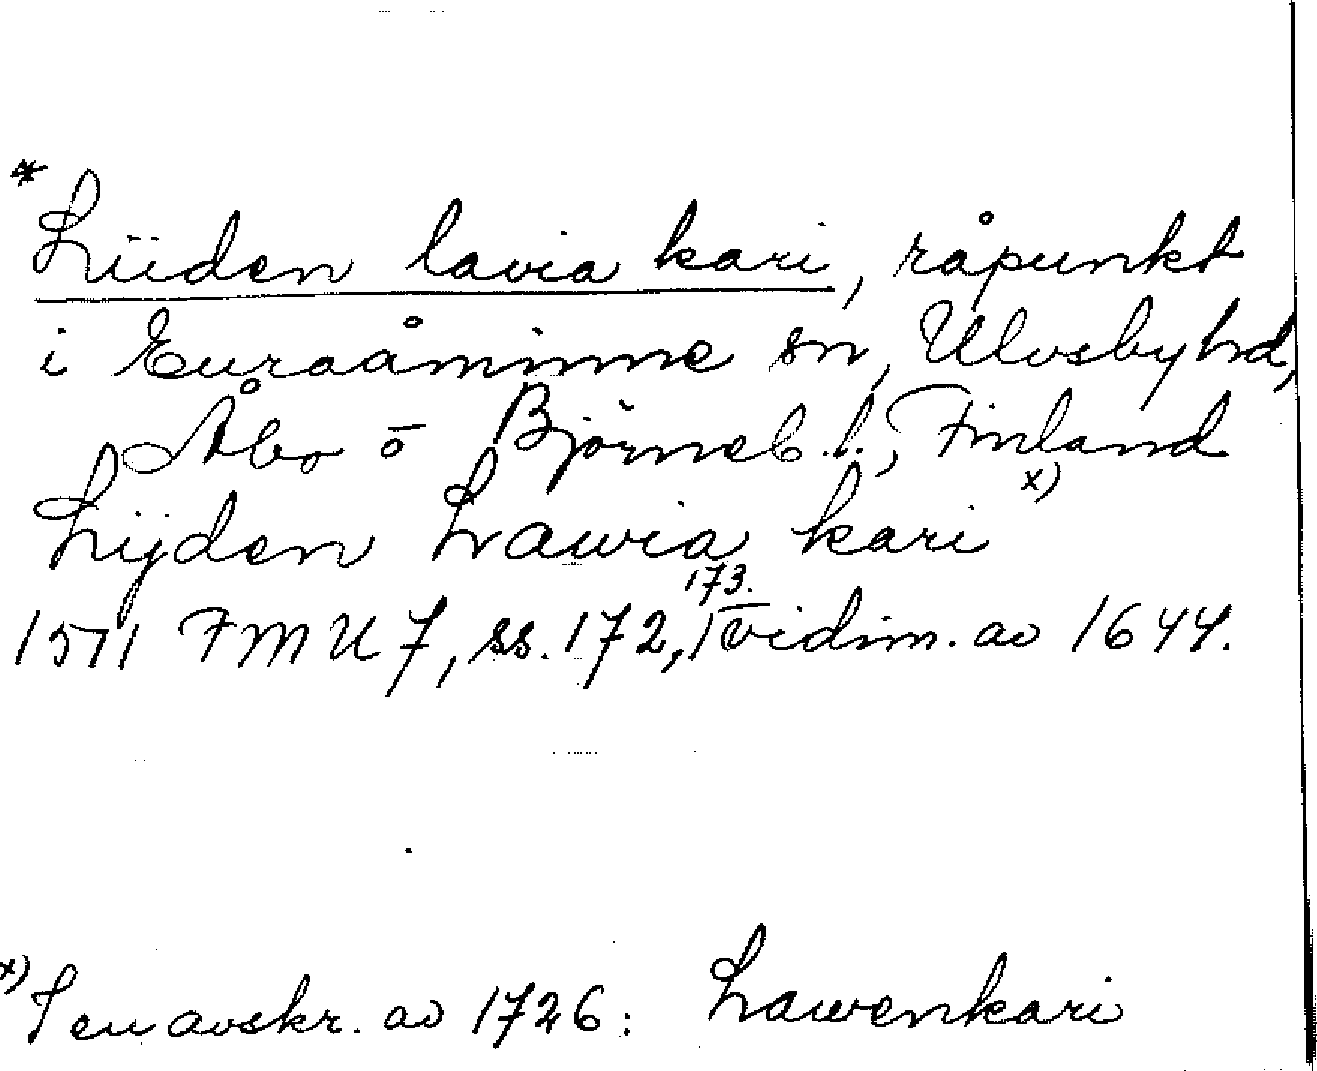 * Liiden lavia kari, råpunkt
i Euraåminne sn, Ulvsby hd,
Åbo o Björneb. l., Finland
Lijden Lawia kari x)
1571 FMU 7, ss. 172, 173. vidim. av 1644.
x) I en avskr. av 1726: Lawenkari